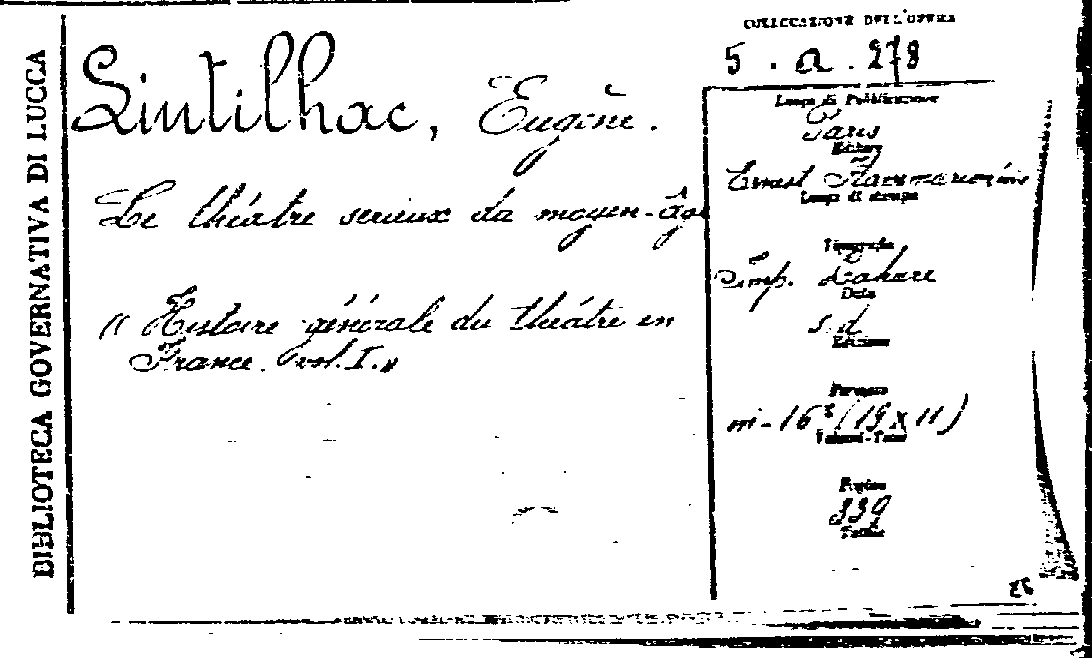 BIBLIOTECA GOVERNATIVA DI LUCCA
COLLOCAZIONE DELL'OPERA
5 . a . 278
Lintilhac, Eugène.
Le théâtre serieux du moyen-âge
" Histoire générale du théâtre en
France. vol. I. "
Luogo di Pubblicazione
Paris
Editore
Ernest Flammarion
Luogo di stampa
Tipografia
Imp. Lahure
Data
s. d
Edizione
Formato
in-16° (19 x 11)
Volumi-Tomi
Pagine
339
Tavole